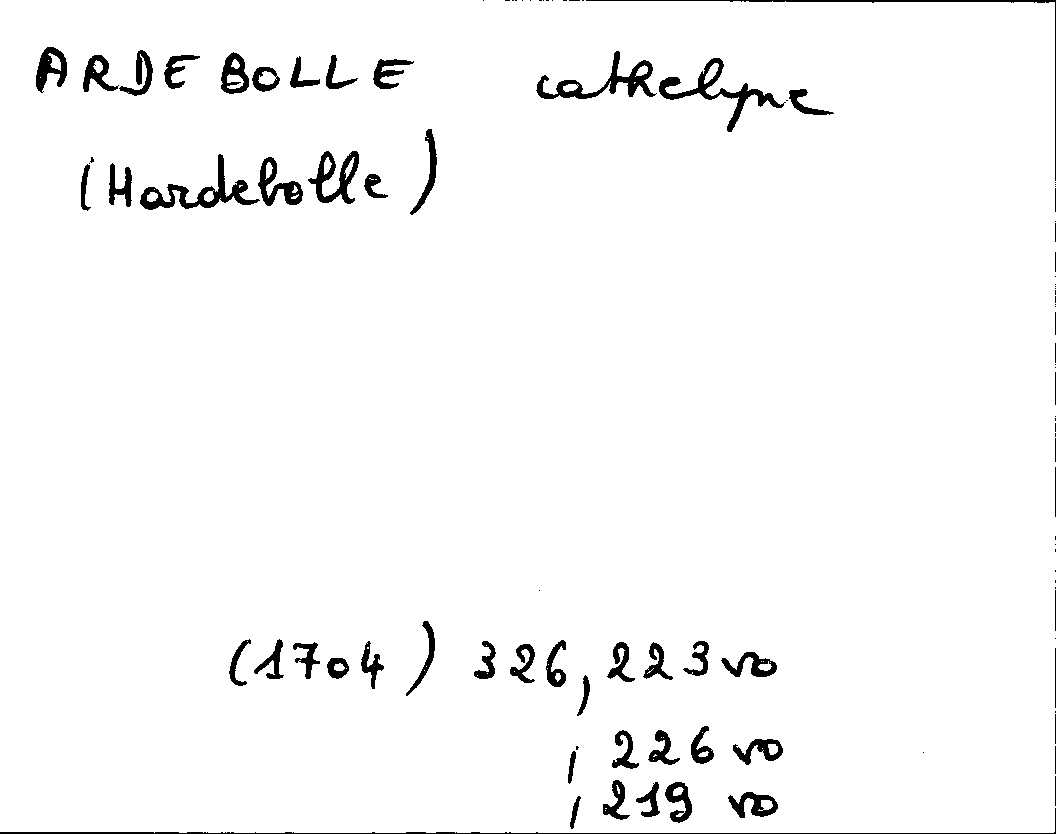 ARDEBOLLE cathelyne
(Hardebolle)
(1704) 326, 223 vo
, 226 vo
, 219 vo